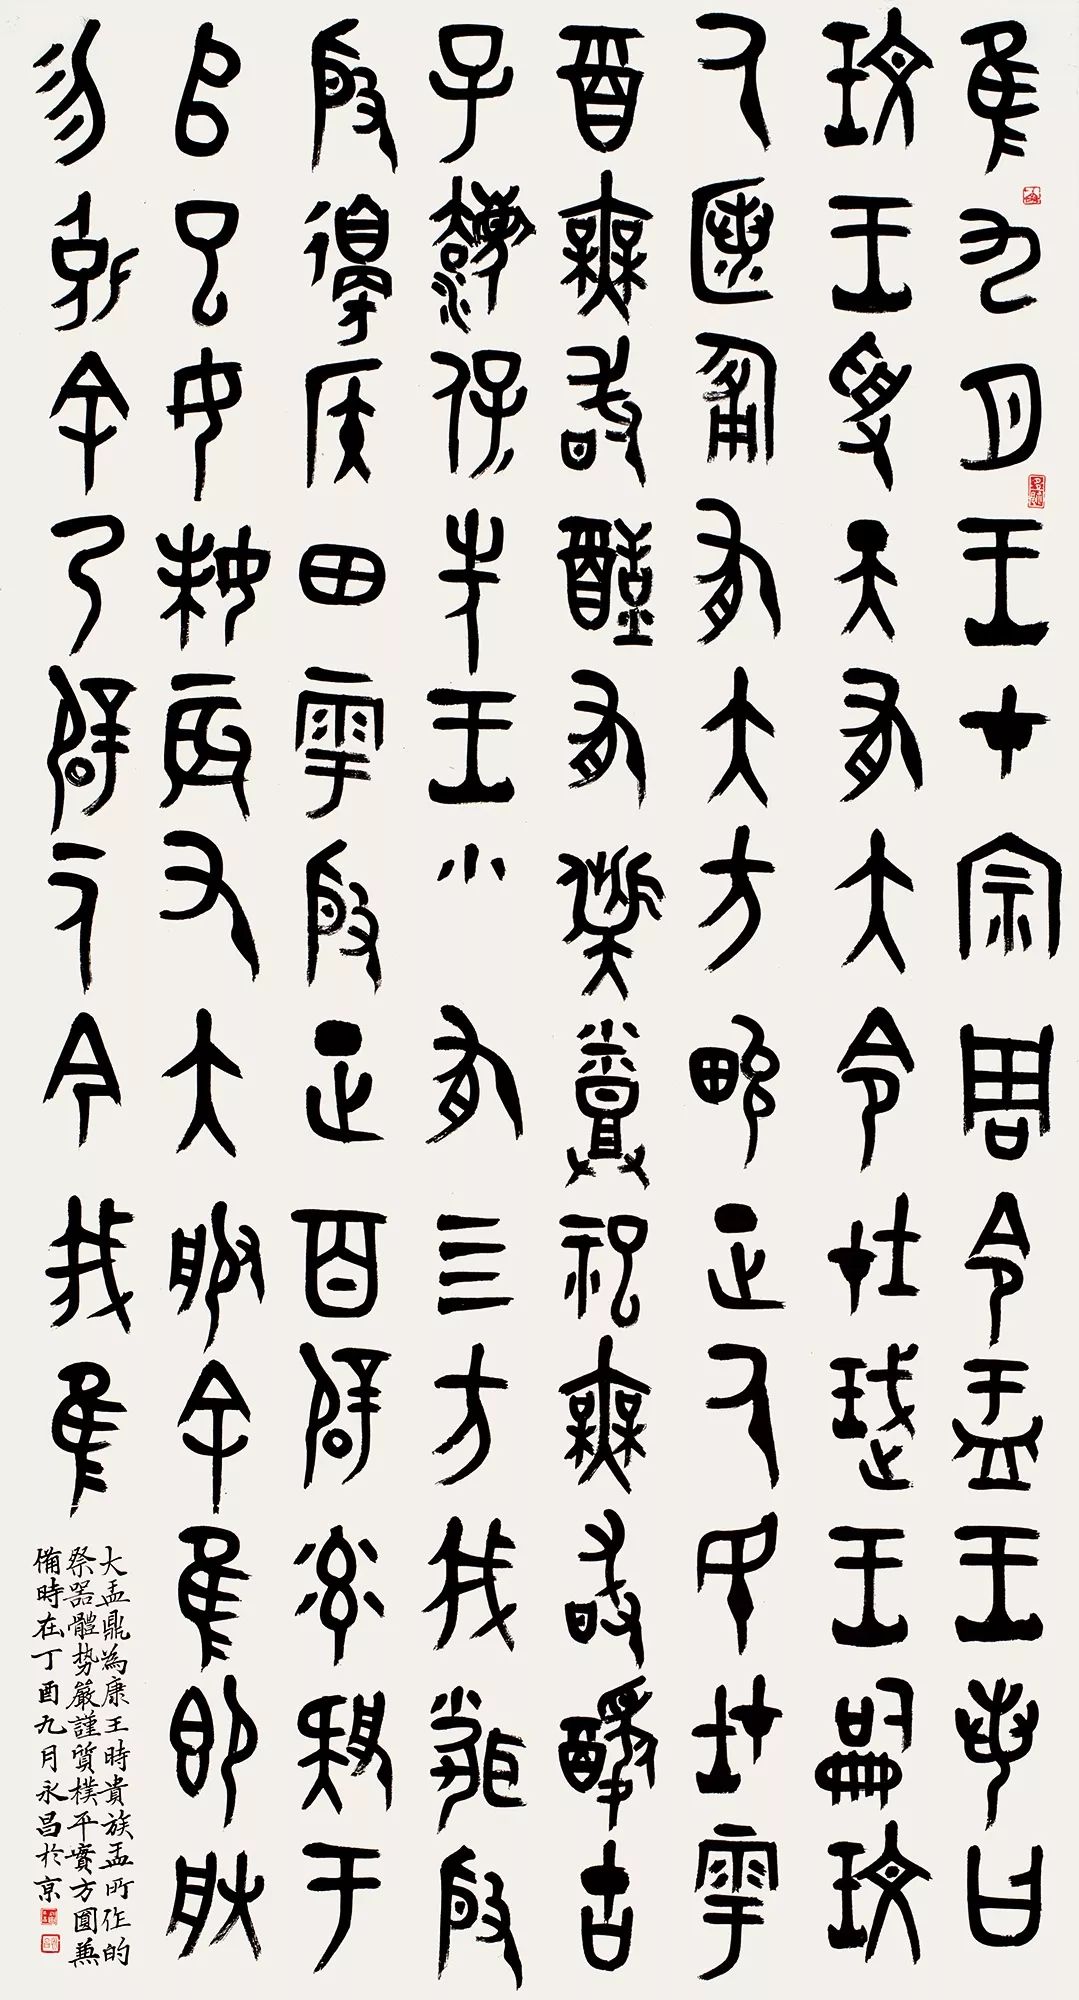 隹九月王才宗周令盂王若曰
玟王受天有大令在珷王嗣玟
厥匿匍有大方畯正厥民在雩
酉無敢酖有祡烝祀無敢醻古
子灋保先王小有三方我聞殷
殷邊侯田雩殷正百辟率肄于
𠂤巳女妹辰又大服余隹即朕
勿剋余乃辟一人今我隹
大盂鼎為康王時貴族盂所作的
祭器體势嚴謹質樸平實方圓兼
備時在丁酉九月永昌於京